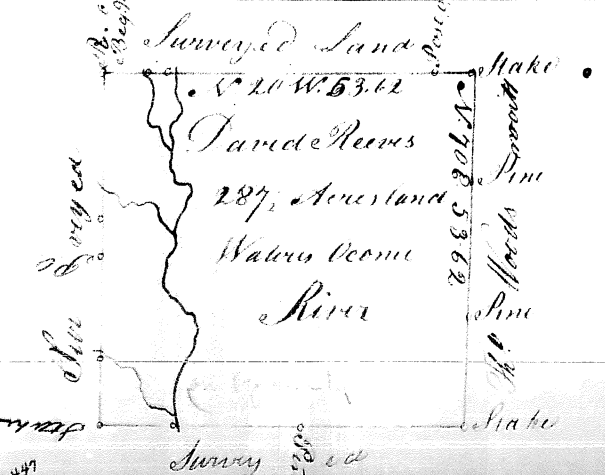 Surveyed Land
Stake
N 20 W. 53.62
David Reeves
287½ Acres land
Waters Oconi
River
N 70 E 53.62
Pine
Pine
Stake
Woods
Sur veyed
Stake
Survey ed
447